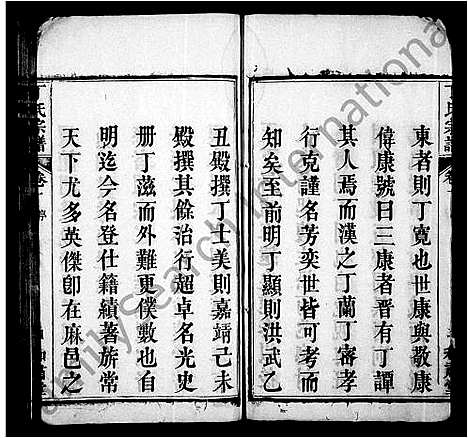 東者則丁寬也世康與敬康
偉康號曰三康者晋有丁譚
其人焉而漢之丁蘭丁審孝
行克謹名芳奕世皆可考而
知矣至前明丁顯則洪武乙
丑殿撰丁士美則嘉靖己未
殿撰其餘治行超卓名光史
册丁滋而外難更僕數也自
明迄今名登仕籍績著族常
天下尤多英傑卽在麻邑之
丁氏宗譜
卷
FamilySearch International